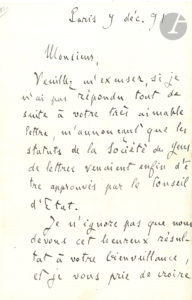 Paris 7 déc. 91
Monsieur,
Veuillez m'excuser, si je
n'ai pas répondu tout de
suite à votre très aimable
lettre, m'annonçant que les
statuts de la Société des Gens
de lettres venaient enfin d'ê
tre approuvés par le Conseil
d'Etat.
Je n'ignore pas que nous
devons cet heureux résul
tat à votre bienveillance,
et je vous prie de croire